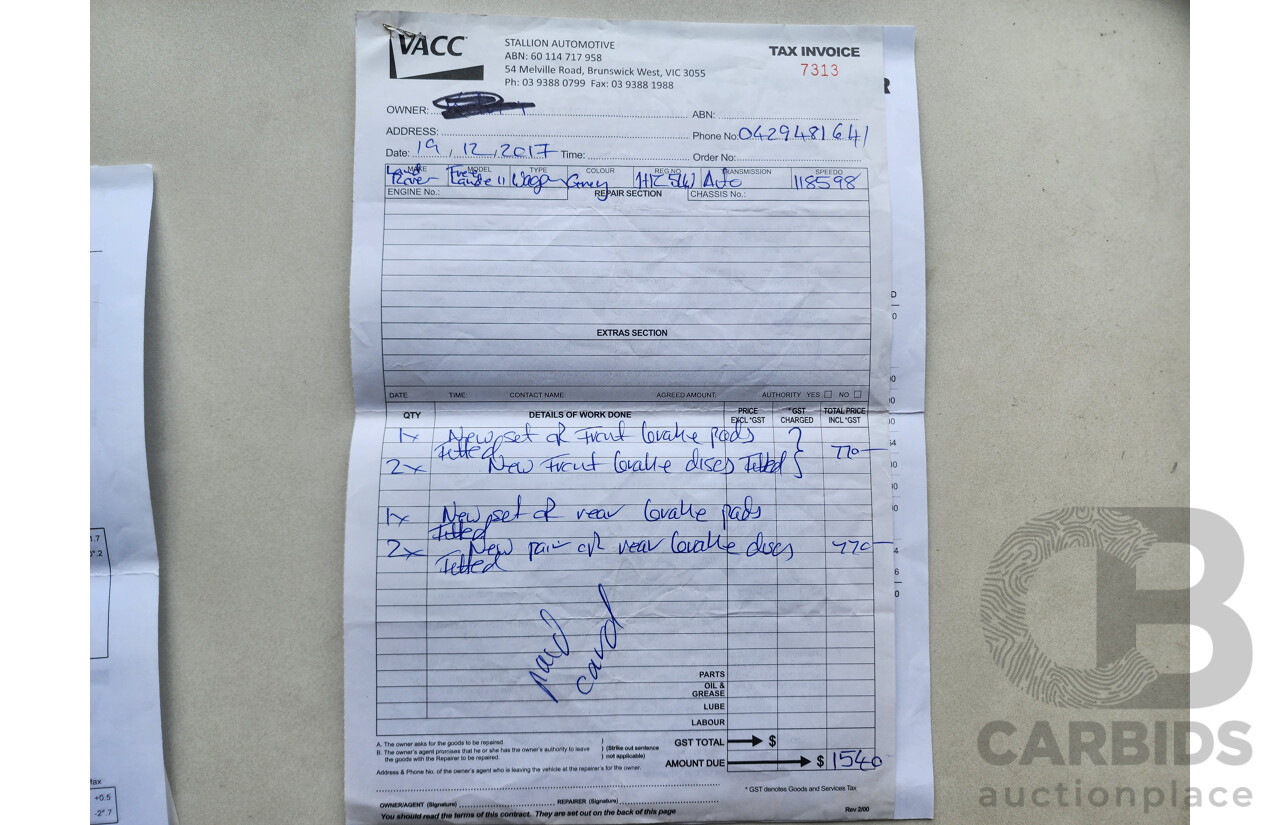 VACC
STALLION AUTOMOTIVE
ABN: 60 114 717 958
54 Melville Road, Brunswick West, VIC 3055
Ph: 03 9388 0799 Fax: 03 9388 1988
TAX INVOICE
7313
OWNER:
ABN:
ADDRESS:
Phone No: 0429481641
Date: 19, 12, 2017 Time: Order No:
MAKE MODEL TYPE COLOUR REG NO TRANSMISSION SPEEDO
Land Rover Free Lande 11 Wagon Grey Auto 118598
ENGINE No.: REPAIR SECTION CHASSIS No.:
EXTRAS SECTION
DATE TIME: CONTACT NAME: AGREED AMOUNT: AUTHORITY YES NO
QTY DETAILS OF WORK DONE PRICE EXCL *GST *GST CHARGED TOTAL PRICE INCL *GST
1x New set of Front brake pads
Fitted
2x New Front brake discs Fitted 770-
1x New set of rear brake pads
Fitted
2x New pair of rear brake discs 770-
Fitted
paid
card
PARTS
OIL &
GREASE
LUBE
LABOUR
GST TOTAL $
AMOUNT DUE $ 1540
A. The owner asks for the goods to be repaired.
B. The owner's agent promises that he or she has the owner's authority to leave
the goods with the Repairer to be repaired.
(Strike out sentence
not applicable)
Address & Phone No. of the owner's agent who is leaving the vehicle at the repairer's for the owner.
* GST denotes Goods and Services Tax
OWNER/AGENT (Signature) REPAIRER (Signature)
You should read the terms of this contract. They are set out on the back of this page
Rev 2/00
+0.5
-2°.7
CARBIDS
auctionplace